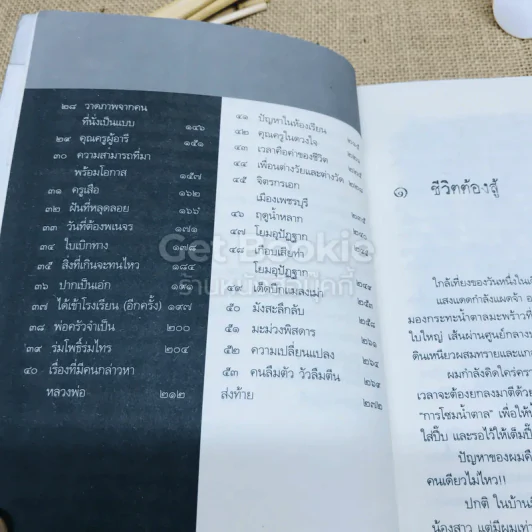 ๒๘ วาดภาพจากคน
ที่นั่งเป็นแบบ ๑๔๖
๒๙ คุณครูผู้อารี ๑๕๑
๓๐ ความสามารถที่มา
พร้อมโอกาส ๑๕๗
๓๑ ครูเสือ ๑๖๒
๓๒ ฝันที่หลุดลอย ๑๖๖
๓๓ วันที่ต้องพเนจร ๑๗๑
๓๔ ใบเบิกทาง ๑๗๘
๓๕ สิ่งที่เกินจะทนไหว ๑๘๔
๓๖ ปากเป็นเอก ๑๙๑
๓๗ ได้เข้าโรงเรียน (อีกครั้ง) ๑๙๗
๓๘ พ่อครัวจำเป็น ๒๐๐
๓๙ ร่มโพธิ์ร่มไทร ๒๐๔
๔๐ เรื่องที่มีคนกล่าวหา
หลวงพ่อ ๒๑๒
๔๑ ปัญหาในห้องเรียน
๔๒ คุณครูในดวงใจ
๔๓ เวลาคือค่าของชีวิต
๔๔ เพื่อนต่างวัยและต่างวัด
๔๕ จิตรกรเอก
เมืองเพชรบุรี
๔๖ ฤดูน้ำหลาก
๔๗ โยมอุปัฏฐาก
๔๘ เกือบเสียท่า
โยมอุปัฏฐาก
๔๙ เด็ดปีกแมลงเม่า
๕๐ มังสะลึกลับ ๒๕๘
๕๑ มะม่วงพิสดาร
๕๒ ความเปลี่ยนแปลง ๒๖๔
๕๓ คนลืมตัว วัวลืมตีน ๒๖๙
ส่งท้าย ๒๗๒
Get Bookie
ร้านหนังสือเก็ทบุ๊คกี้
๑ ชีวิตต้องสู้
ใกล้เที่ยงของวันหนึ่งใน
แสงแดดกำลังแผดจ้า
มองกระทะน้ำตาลมะพร้าวที่
ใบใหญ่ เส้นผ่านศูนย์กลาง
ดินเหนียวผสมทรายและแก
ผมกำลังคิดใคร่คร
เวลาจะต้องยกลงมาตีด้วย
"การโซมน้ำตาล" เพื่อให้น้
ใส่ปี๊บ และรอไว้ให้เต็มปี๊
ปัญหาของผมคื
คนเดียวไม่ไหว!!
ปกติ ในบ้าน
น้องสาว แต่มีผมเท่า